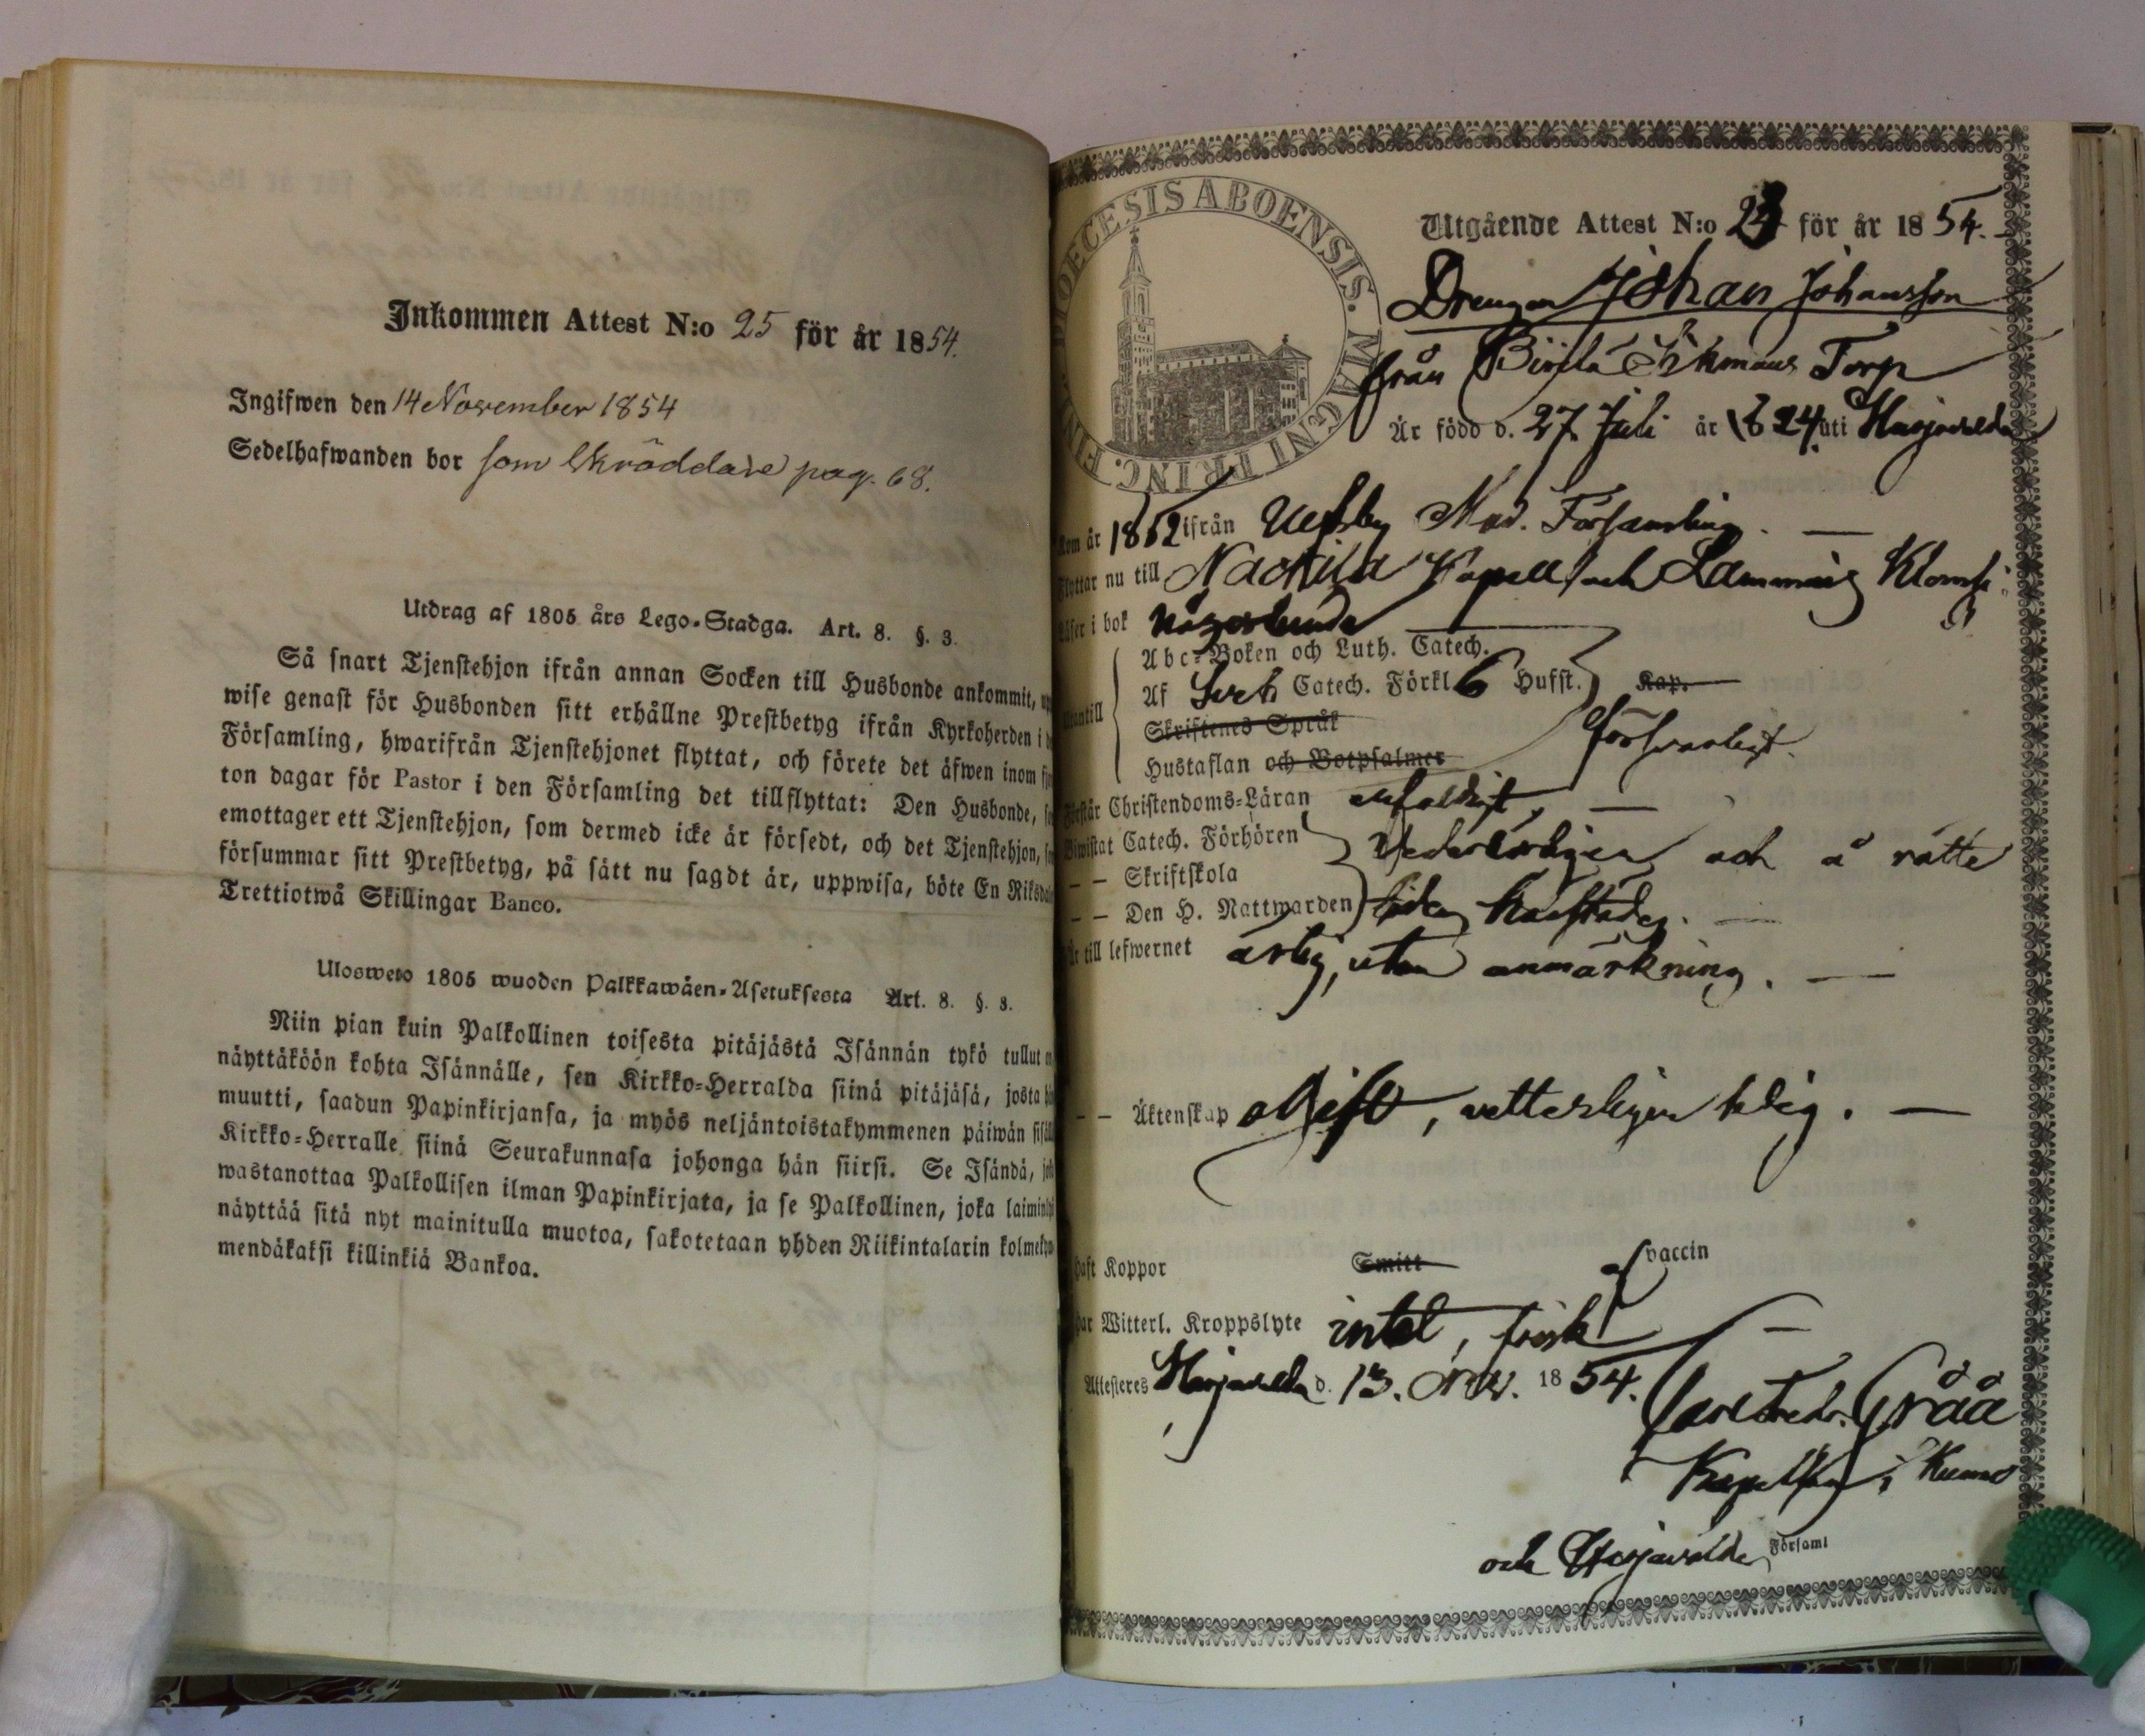 Inkommen Attest N:o 25 för år 1854.
Ingifwen den 14 November 1854
Sedelhafwanden bor som Skräddare pag. 68.
Utdrag af 1805 års Lego-Stadga. Art. 8. §. 3.
Så snart Tjenstehjon ifrån annan Socken till Husbonde ankommit, upp
wise genast för Husbonden sitt erhållne Prestbetyg ifrån Kyrkoherden i
Församling, hwarifrån Tjenstehjonet flyttat, och förete det äfwen inom
ton dagar för Pastor i den Församling det tillflyttat: Den Husbonde,
emottager ett Tjenstehjon, som dermed icke är försedt, och det Tjenstehjon,
försummar sitt Prestbetyg, på sätt nu sagdt är, uppwisa, böte En Riksdal
Trettiotwå Skillingar Banco.
Ulosweto 1805 wuoden Palkkawäen-Asetuksesta Art. 8. §. 3.
Niin pian kuin Palkollinen toisesta pitäjästä Isännän tykö tullut on
näyttäköön kohta Isännälle, sen Kirkko-Herralda siinä pitäjäsä, josta
muutti, saadun Papinkirjansa, ja myös neljäntoistakymmenen päiwän sisäll
Kirkko-Herralle siinä Seurakunnasa johonga hän siirsi. Se Isändä,
wastanottaa Palkollisen ilman Papinkirjata, ja se Palkollinen, joka laimin
näyttää sitä nyt mainitulla muotoa, sakotetaan yhden Riikintalarin kolmeky
mendäkaksi killinkiä Bankoa.
DIOECESIS ABOENSIS. MAGNI PRINC. FINL.
Utgående Attest N:o för år 1854.
Drengen Johan Johansson
från Torp
Är född d. 27 Juli år 1824 uti Harjavalda
Kom år 1852 ifrån Ulfsby Mod. Församling.
Flyttar nu till Nackila Kapell och
Läser i bok någorlunda
Abc-Boken och Luth. Catech.
Utantill Af Catech. Förkl 6 Hufst. Kap.
Skriftenes Språk försvarligt.
Hustaflan och Botpsalmer
Förstår Christendoms-Läran enfaldigt,
Biwistat Catech. Förhören vederbörligen och å rätta
— — Skriftskola
— — Den H. Nattwarden tider
Är till lefwernet ärlig, utan anmärkning.
— — Äktenskap ogift, vetterligen ledig.
Haft Koppor Smitt af vaccin
Har Witterl. Kroppslyte intet, frisk
Attesteres Harjavalda d. 13. Nov. 1854.
Carl Fredr. Gråå
Kapellan i Kumo
och Harjavalda Församl